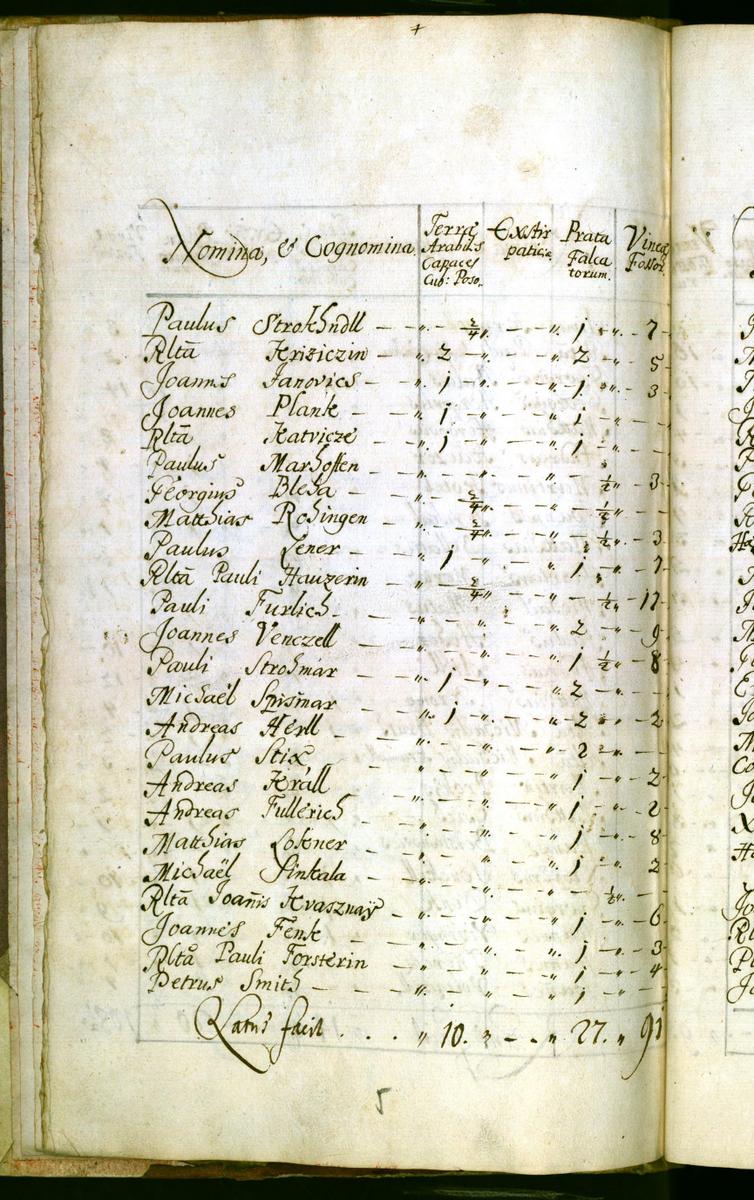 Nomina, & Cognomina. Terræ Arabiles Capaces Cub: Poson. Exstirpatitiæ Prata Falcatorum. Vinea Fossor.
Paulus Strokhndll — „ 2/4 „ — „ 1 „ — 7
Rltā Hriziczin — „ 2 — „ — „ 2 „ — 5
Joannes Janovics — „ 1 — „ — „ 1 „ — 3
Joannes Plank — „ 1 — „ — „ 1 „ —
Rltā Katvicze — „ 1 — „ — „ 1 „ —
Paulus Marhoffen — „ — „ — „ 1/2 „ — 3
Georgius Blesa — „ 2/4 „ — „ 1/2 „ —
Matthias Rohingen — „ 2/4 „ — „ 1/2 „ — 3
Paulus Lener — „ 1 — „ — „ 1 „ — 7
Rltā Pauli Hauzerin — „ 2/4 „ — „ 1/2 „ — 17
Pauli Furlich — „ — „ — „ 2 „ — 9
Joannes Venczell — „ — „ — „ 1 1/2 „ — 8
Pauli Strohmar — „ 1 — „ — „ 2 — „ —
Michaël Spismar — „ 1 — „ — „ 2 „ — 2
Andreas Hërll — „ — „ — „ 2 „ —
Paulus Stix — „ — „ — „ 1 „ — 2
Andreas Kräll — „ — „ — „ 1 „ — 2
Andreas Fullerich — „ — „ — „ 1 „ — 8
Matthias Lotener — „ — „ — „ 1 „ — 2
Michaël Sinkala — „ — „ — „ 1/2 „ —
Rltā Joañis Hvasznaÿ — „ — „ — „ 1 „ — 6
Joannes Fenk — „ — „ — „ 1 „ — 3
Rltā Pauli Forsterin — „ — „ — „ 1 „ — 4
Petrus Smith — „ — „ — „ 1 „ —
Latus facit . . . . „ 10. „ — . — „ 27. „ 91
5